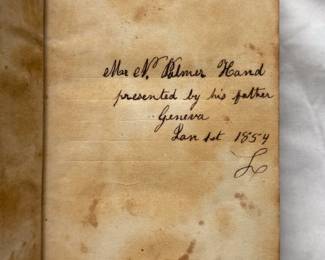 Mr N. Palmer Hand
presented by his father
Geneva
Jan 1st 1854